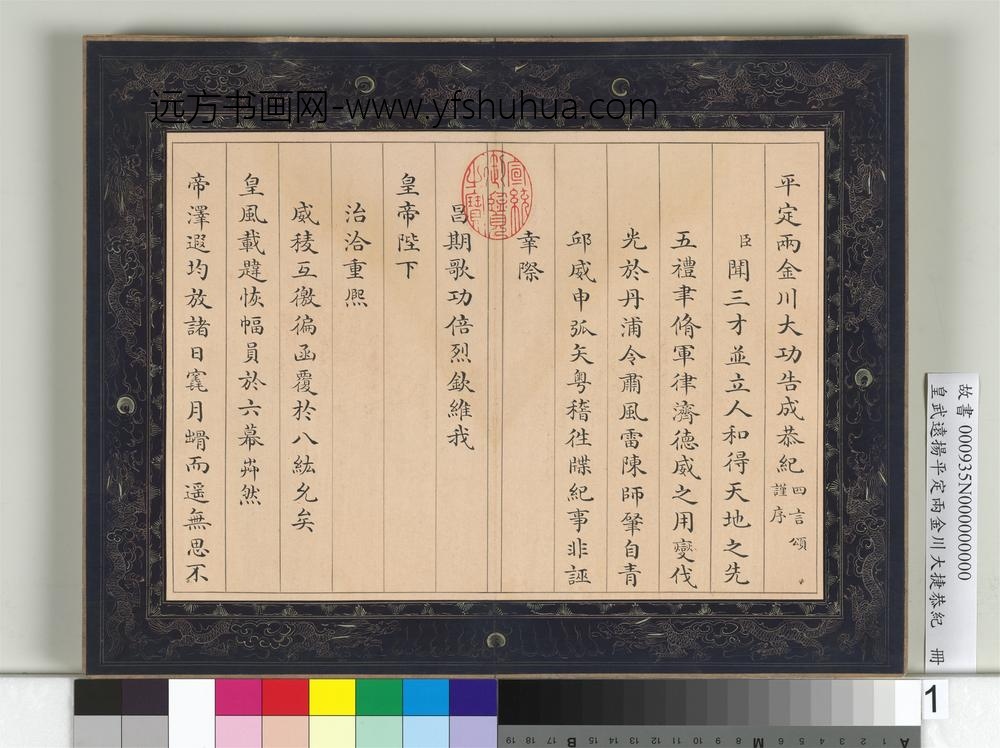 远方书画网-www.yfshuhua.com
平定兩金川大功告成恭紀四言頌
謹序
臣聞三才並立人和得天地之先
五禮聿脩軍律濟德威之用變伐
光於丹浦令肅風雷陳師肇自青
邱威申弧矢粤稽徃牒紀事非誣
幸際
昌期歌功倍烈欽維我
皇帝陛下
治洽重熙
威稜互徼徧函覆於八紘允矣
皇風載韙恢幅員於六幕茻然
帝澤遐均放諸日窟月䯏而遥無思不
宣統御覽之寶
故書 000935N000000000
皇武遠揚平定兩金川大捷恭紀 冊
1
A 1 2 3 4 5 M 8 9 10 11 12 13 14 15 B 17 18 19